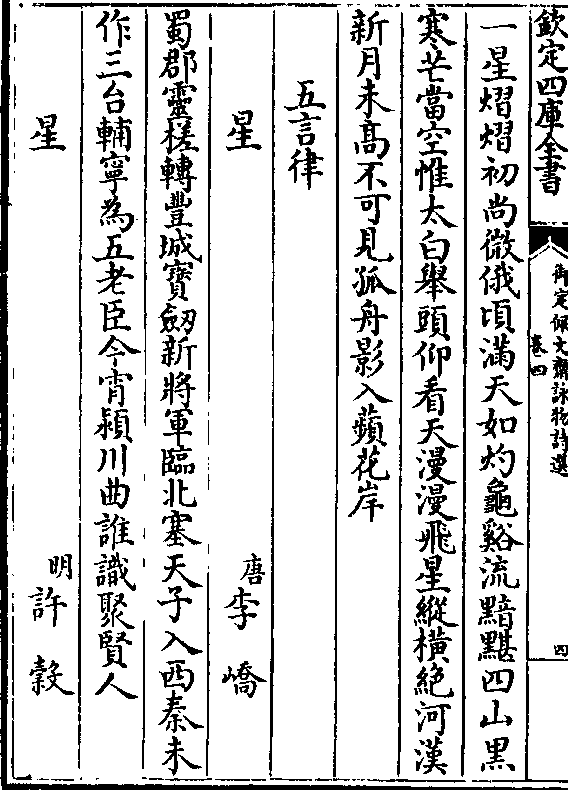 欽定四庫全書
御定佩文齋詠物詩選
卷四
四
一星熠熠初尚微俄頃滿天如灼龜谿流黯黮四山黑
寒芒當空惟太白舉頭仰看天漫漫飛星縱橫絶河漢
新月未高不可見孤舟影入蘋花岸
五言律
星
唐李嶠
蜀郡靈槎轉豐城寶劒新將軍臨北塞天子入西秦未
作三台輔寧為五老臣今宵潁川曲誰識聚賢人
星
明許穀